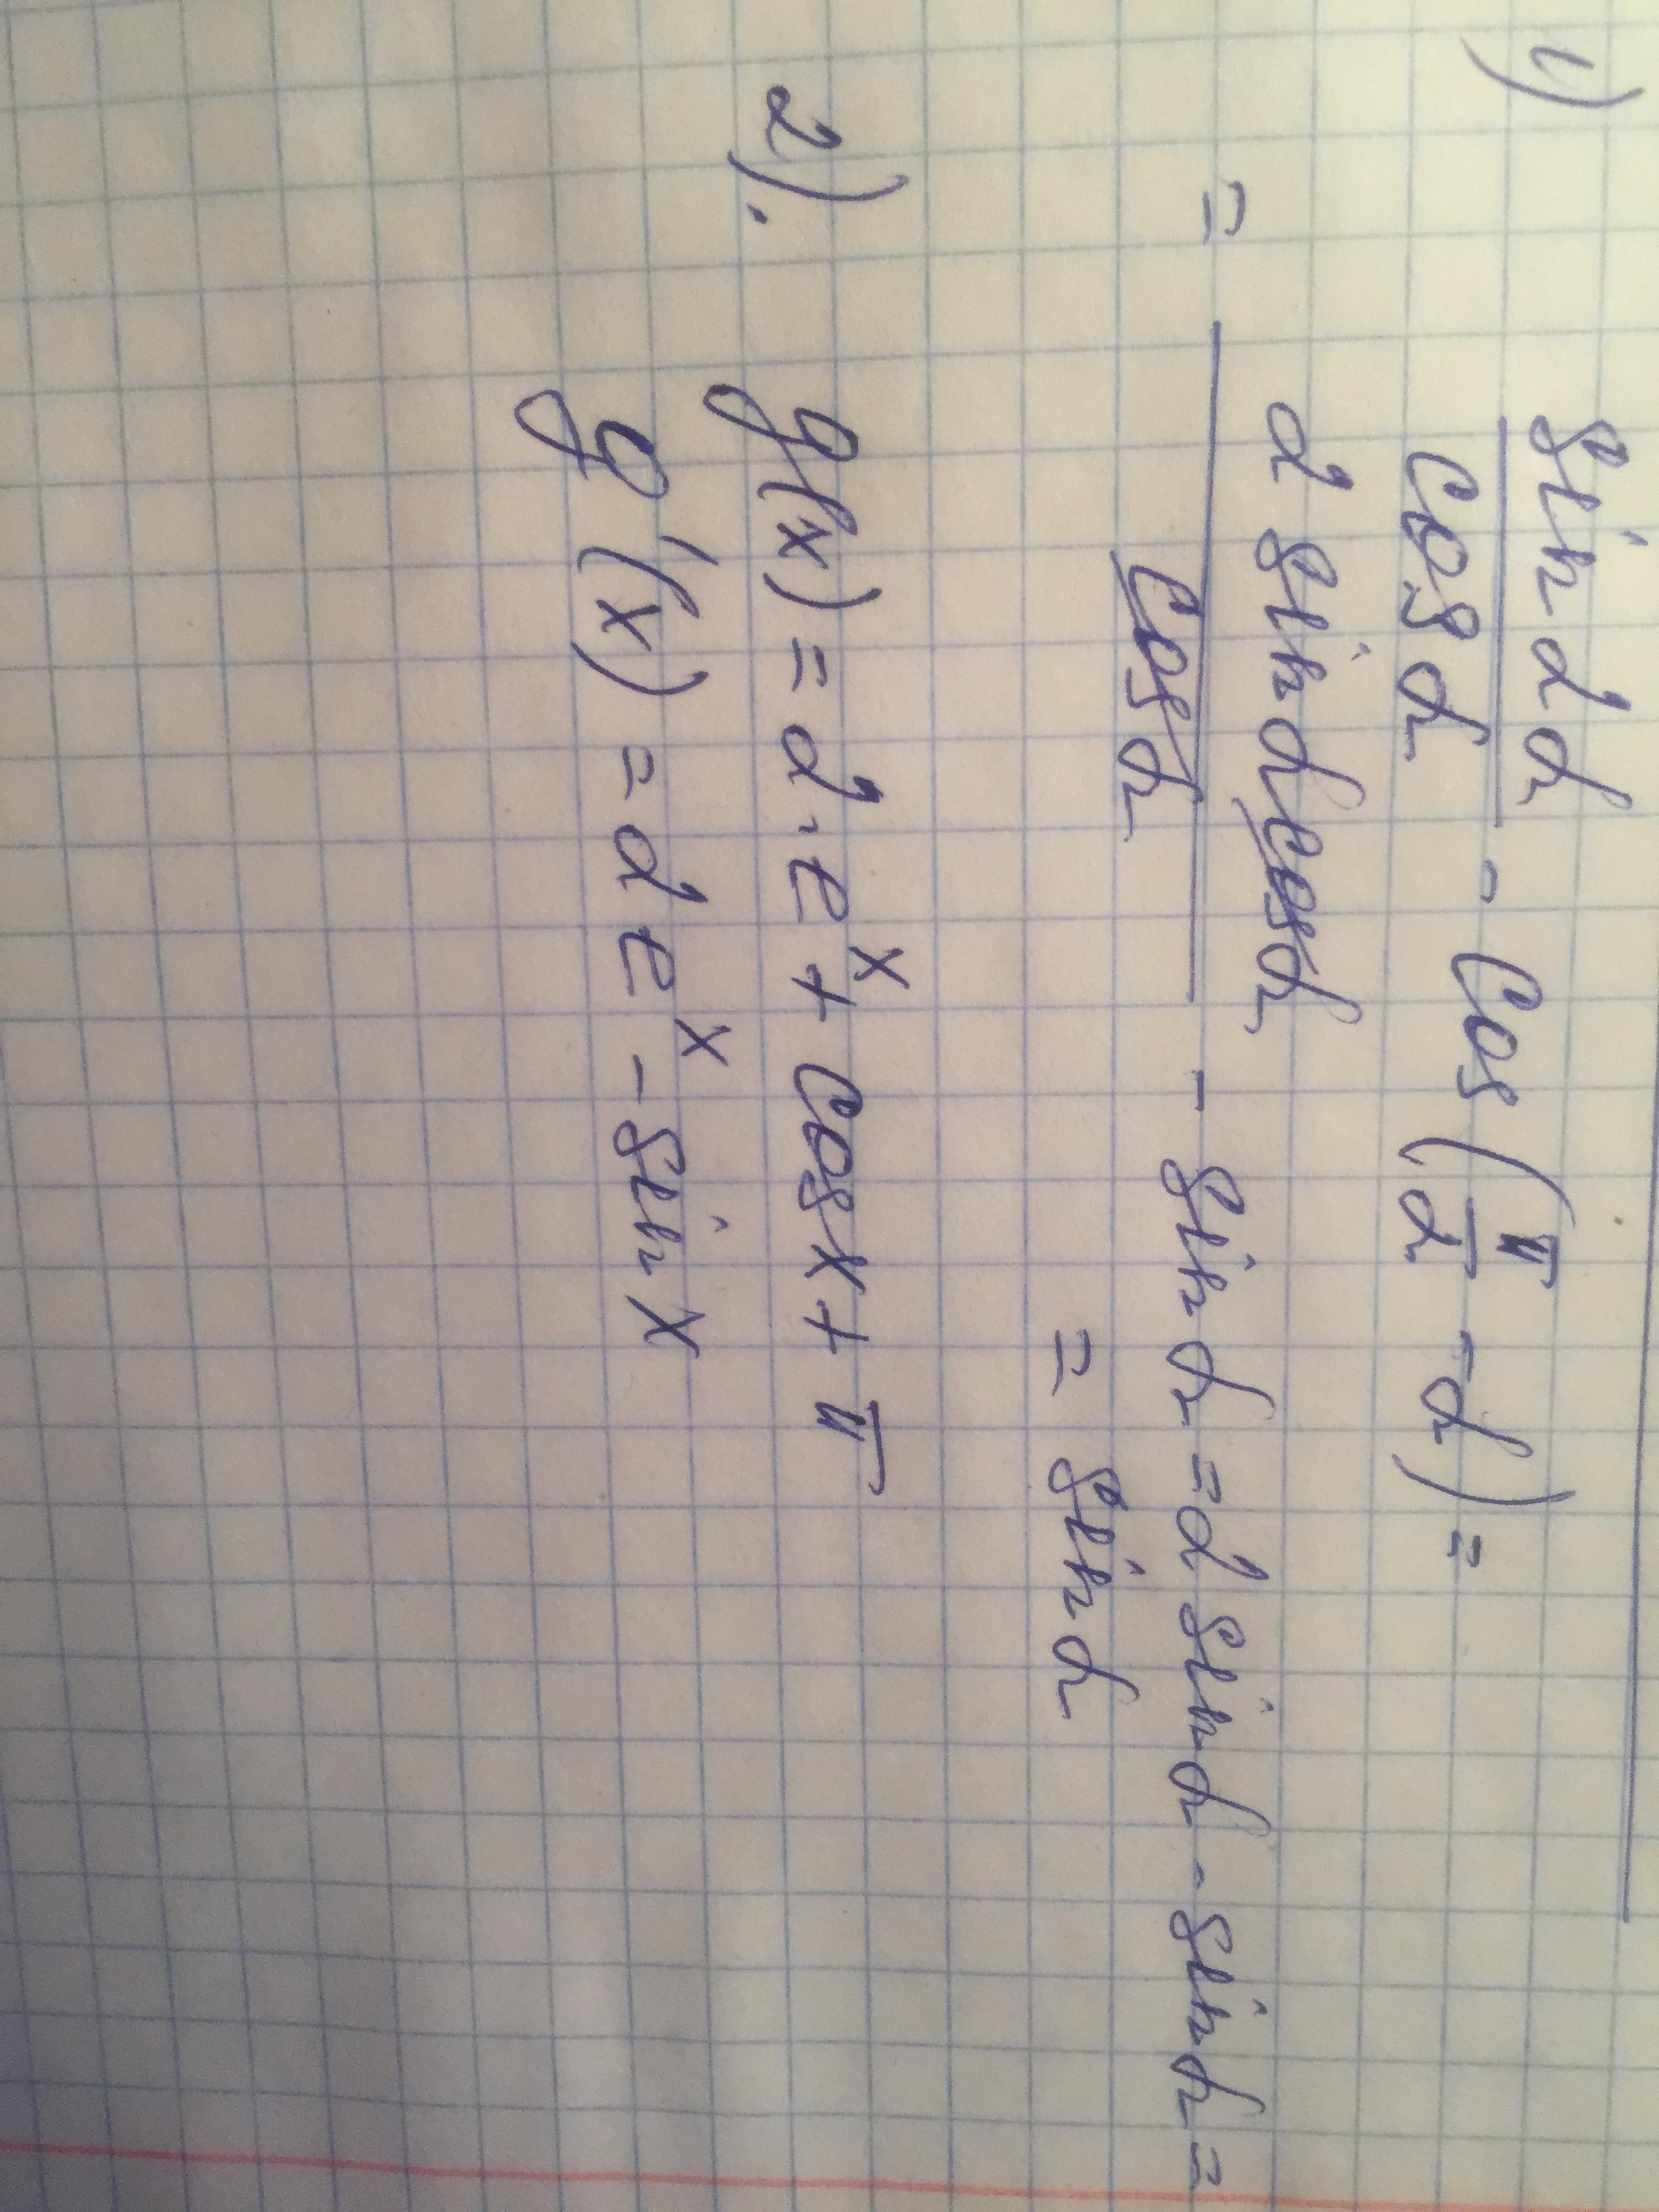 1) sin2α/cosα - cos(π/2 - α) =
= 2 sinα cosα/cosα - sinα = 2 sinα - sinα =
= sinα
2). g(x) = 2·e^x + cosx + π
g'(x) = 2e^x - sinx